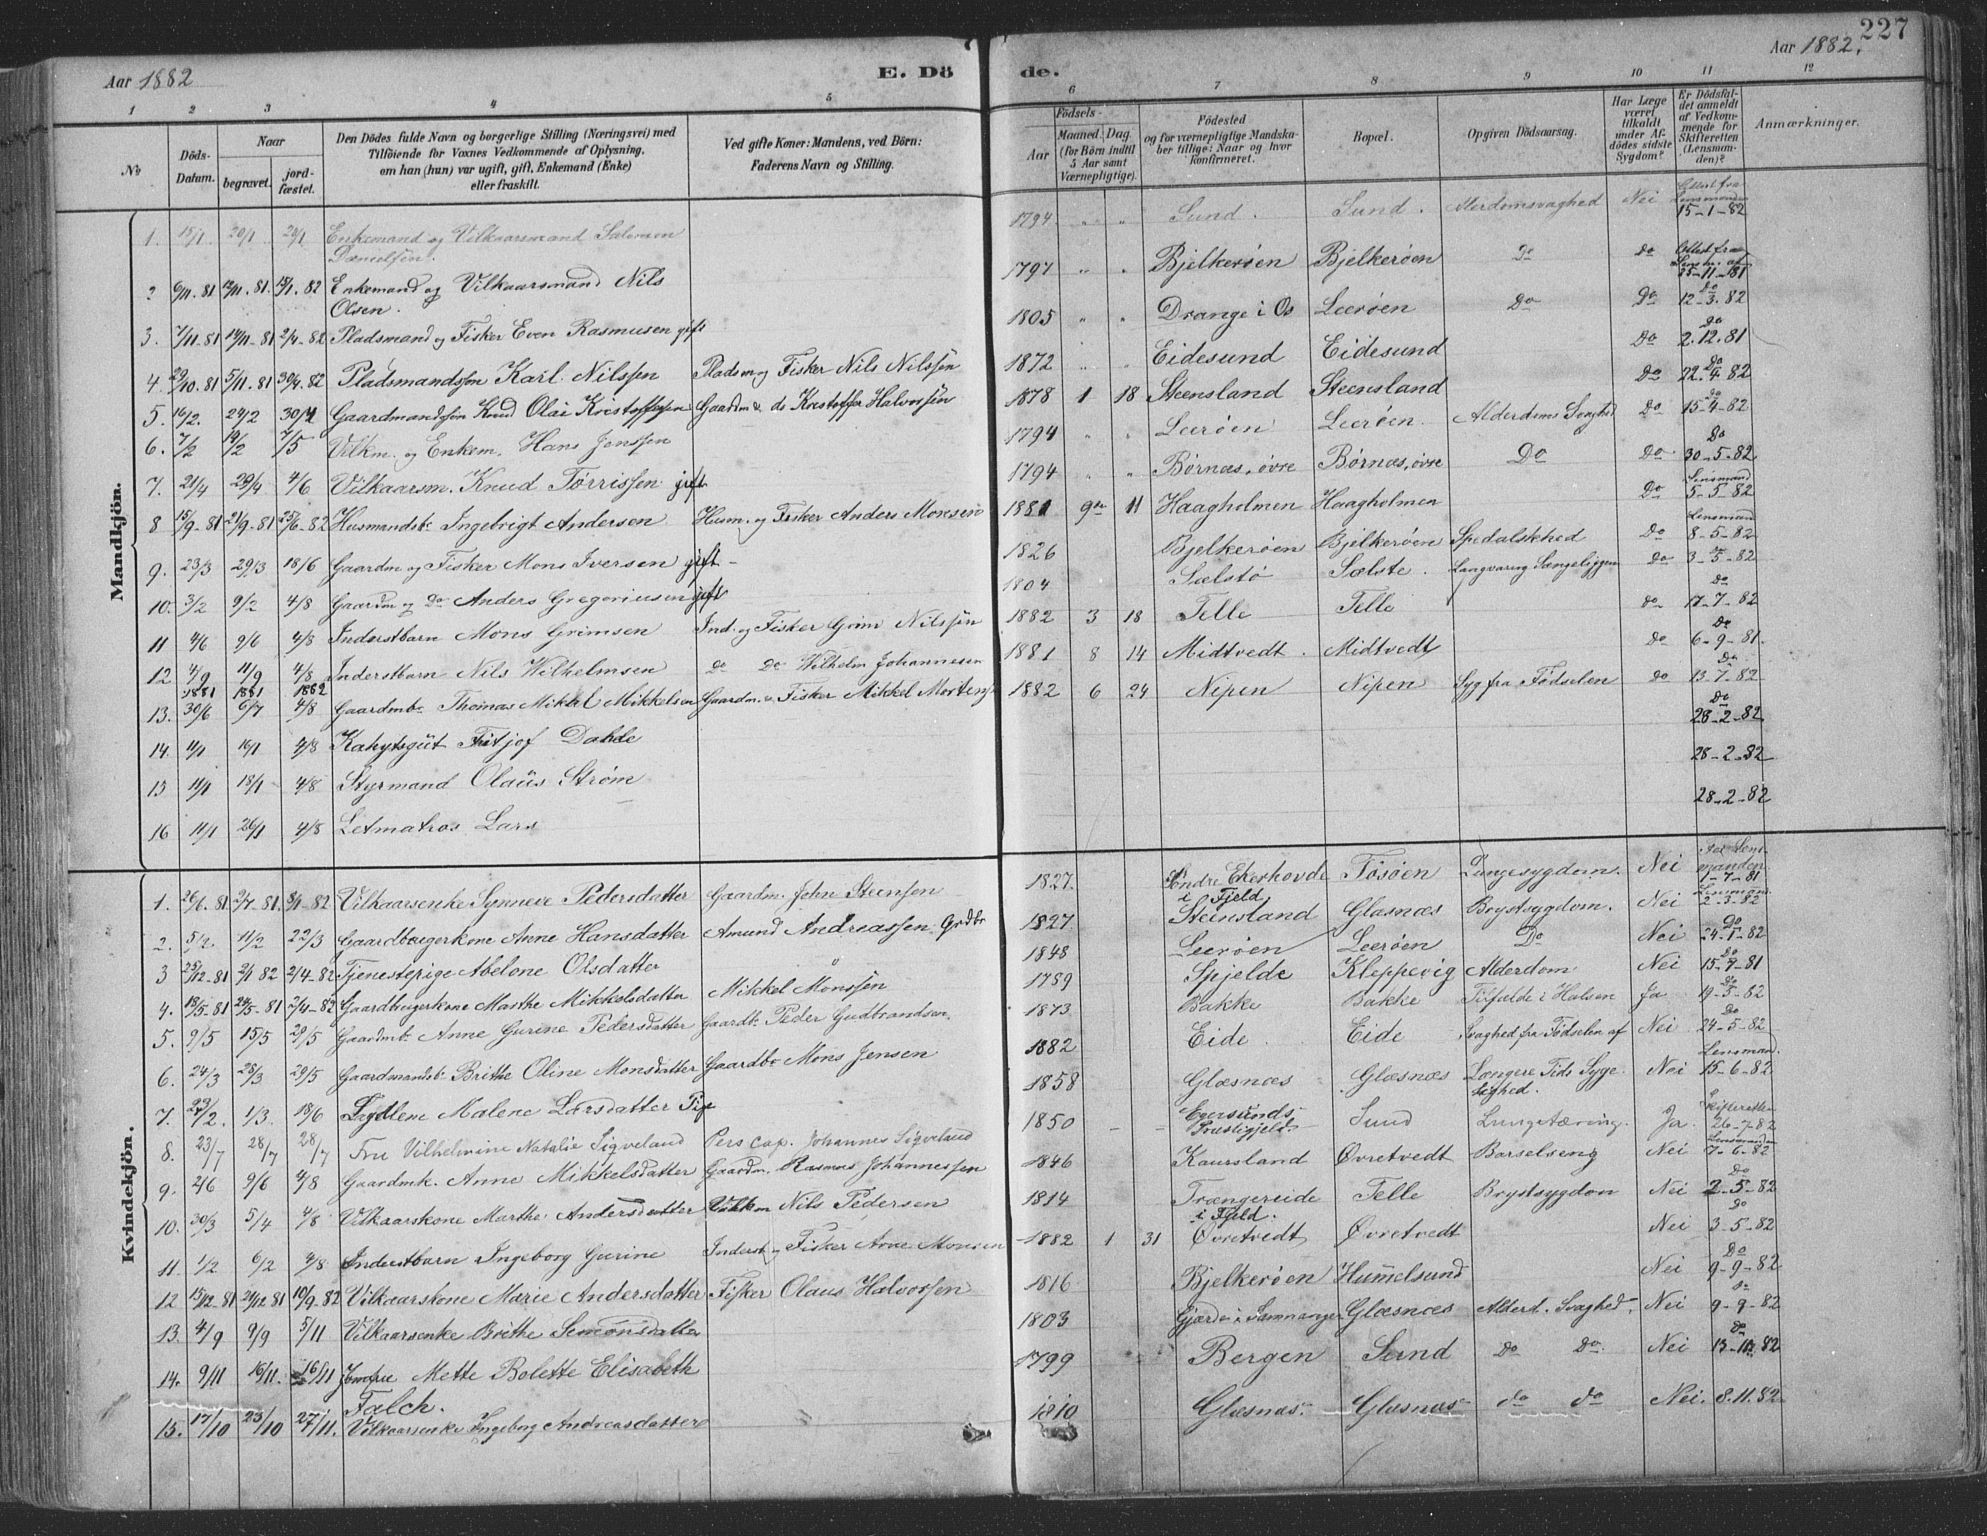 Aar 1882
E. Dö
de.
Aar 1882.
227
1 2 3 4 5 6 7 8 9 10 11 12
No
Döds-Datum.
Naar
begravet.
jordfæstet.
Den Dödes fulde Navn og borgerlige Stilling (Næringsvei) med
Tilföiende for Voxnes Vedkommende af Oplysning.
om han (hun) var ugift, gift, Enkemand (Enke)
eller fraskilt.
Ved gifte Koner: Mandens, ved Börn:
Faderens Navn og Stilling.
Födsels-
Aar
Maaned. Dag.
(for Börn indtil
5 Aar samt
Værnepligtige).
Födested
og for værnepligtige Mandska-
ber tillige: Naar og hvor
konfirmeret.
Bopæl.
Opgiven Dödsaarsag.
Har Læge
været
tilkaldt
under Af-
dödes sidste
Sygdom?
Er Dödsfal-
det anmeldt
af Vedkom-
mende for
Skifteretten
(Lensman-
den)?
Anmærkninger.
Mandkjön.
1. 15/1 20/1 24/1 Enkemand og Vilkaarsmand Salomon Danielsen. 1794 " " Sund. Sund. Alderdomsvaghed Nei Attest fra Lensmanden 15-1-82
2 6/11.81 12/11.81. 15/1.82 Enkemand og Vilkaarsmand Nils Olsen. 1797 " " Bjelkeröen Bjelkeröen Do do Attest fra Lensm. af 25-11-181
3. 7/11-81 14/11-81 2/4-82 Pladsmand og Fisker Even Rasmusen gift 1805 " " Drange i Os Leeröen Do Do Do 12-3.82
4. 29/10.81 5/11.81 30/4.82 Pladsmandssön Karl Nilssen Pladsm og Fisker Nils Nilssön 1872 " " Eidesund Eidesund Do Do 2.12.81
5. 16/2. 24/2 30/4 Gaardmandssön Knud Olai Kristoffersen Gaardm & do Kristoffer Halvorssön 1878 1 18 Steensland Steensland Do Do 22.4 82
6. 7/2 14/2 7/5 Vilkm. og Enkem. Hans Jenssen 1794 " " Leeröen Leeröen. Alderdoms Svaghed Do do 15-4-82
7. 21/4 29/4 4/6 Vilkaarsm. Knud Törrissen gift 1794 " Börnæs, övre Börnæs, övre Do Do Do 30-5-82
8 15/9-81 21/9-81 25/6-82 Husmandsb. Ingebrigt Andersen Husm. og Fisker Anders Monsen 1881 9 11 Haagholmen Haagholmen Do Lensmand 5-5-82
9. 23/3 29/3 18/6 Gaardm og Fisker Mons Iversen gift - 1826 Bjelkeröen Bjelkeröen Spedalskhed Do Lensmand 8-5-82
10. 3/2 9/2 4/8 Gaardm og Do Anders Gregoriusen gift 1804 Sælstö Sælste. Langvarig Sængeliggen Do Do 3-5-82
11 4/6 9/6 4/8 Inderstbarn Mons Grimsen Ind. og Fisker Grim Nilssön 1882 3 18 Telle Telle do Do 17-7-82
12 4/9 1881 11/9 1881 4/8 1882 Inderstbarn Nils Wilhelmsen do do Wilhelm Johannesen 1881 8 14 Midtvedt. Midtvedt do Do 6-9-81.
13. 30/6 6/7 4/8 Gaardmb. Thomas Mikkel Mikkelsen Gaardm. & Fisker Mikkel Mortens 1882 6 24 Nipen Nipen Syg fra Födselen do Do 13-7-82
14. 11/1 16/1 4/8 Kahytsgut Fritjof Dahle Do 28-2-82
15 11/1 18/1 4/8 Styrmand Olaüs Ström 28-2-82
16 11/1 26/1 4/8 Letmatros Lars 28-2-82
Kvindekjön.
1. 26/6.81 2/7.81. 8/1-82 Vilkaarsenke Synneve Pedersdatter Gaardm. John Steensen 1827. Söndre Ekerhovde i Fjeld Tösöen Lungesygdom. Nei Lensmanden 1-7-81
2. 5/2 11/2 22/3 Gaardbrugerkone Anne Hansdatter Amund Andreassen Grdbr 1827 Steinsland Glæsnæs Brystsygdom. Nei Lensmand 2-3-82
3 25/12-81 2/1 82 2/4-82 Tjenestepige Abelone Olsdatter 1848 Leeröen Leeröen Do Nei Do 24-1-82
4. 18/5-81 24/5-81 2/4-82 Gaardbrugerkone Marthe Mikkelsdatter Mikkel Monssen 1789 Spjelde Kleppevig Alderdom Nei Do 15-7-81
5. 9/5 15/5 29/5 Gaardmb. Anne Gurine Pedersdatter Gaardb. Peder Gudbrandsen. 1873 Bakke Bakke Tilfælde i Halsen Ja Do 19-5-82
6. 24/3 28/3 29/5 Gaardmandsb. Brithe Oline Monsdatter Gaardbr Mons Jensen 1882 Eide. Eide Svaghed fra Födselen af Nei Do 24-5-82
7. 23/2. 1/3. 18/6 Malene Larsdatter Pige 1858 Glæsnæs Glæsnæs Længere Tids Syge- lighed. Nei Lensmand. 15-6-82
8. 23/7 28/7 28/7 Fru Vilhelmine Natalie Sigveland Pers. cap. Johannes Sigveland 1850 - - Egersunds Prestigjeld. Sund Lungetæring. Ja. Skifteretten 26-7 82
9. 2/6 9/6 4/8 Gaardmk. Anne Mikkelsdatter Gaardm. Rasmus Johannessen 1846 Kaursland Övretvedt Barselseng Nei Lensmanden 7-6-82
10. 30/3 5/4 4/8 Vilkaarskone Marthe Andersdatter Vilkm Nils Pedersen 1814 Trængereide i Fjeld. Telle Brystsygdom Nei Do 2-5-82
11. 1/2 6/2 4/8 Inderstbarn Ingeborg Gurine Inderst og Fisker Arne Monsen 1882 1 31 Övretvedt Övretvedt Nei Do 3-5-82
12 15/12-81 21/12 81 10/9-82 Vilkaarskone Marie Andersdatter Fisker Olaus Halvorssen 1816 Bjelkeröen Hummelsund Nei Do 9-9-82
13. 4/9 9/9 5/11 Vilkaarsenke Brithe Simonsdatter 1803 Gjærde i Samnanger Glæsnæs Alderd. Svaghed. Nei Do 9-9-82
14. 9/11 16/11. 16/11 Jomfru Mette Bolette Elisabeth Falch. 1799 Bergen Sund Do Do. Nei Do 13-11.82
15. 17/10 23/10 27/11. Vilkaarsenke Ingeborg Andreasdatter 1810 Glæsnæs Glæsnæs do do Nei. 8.11.82